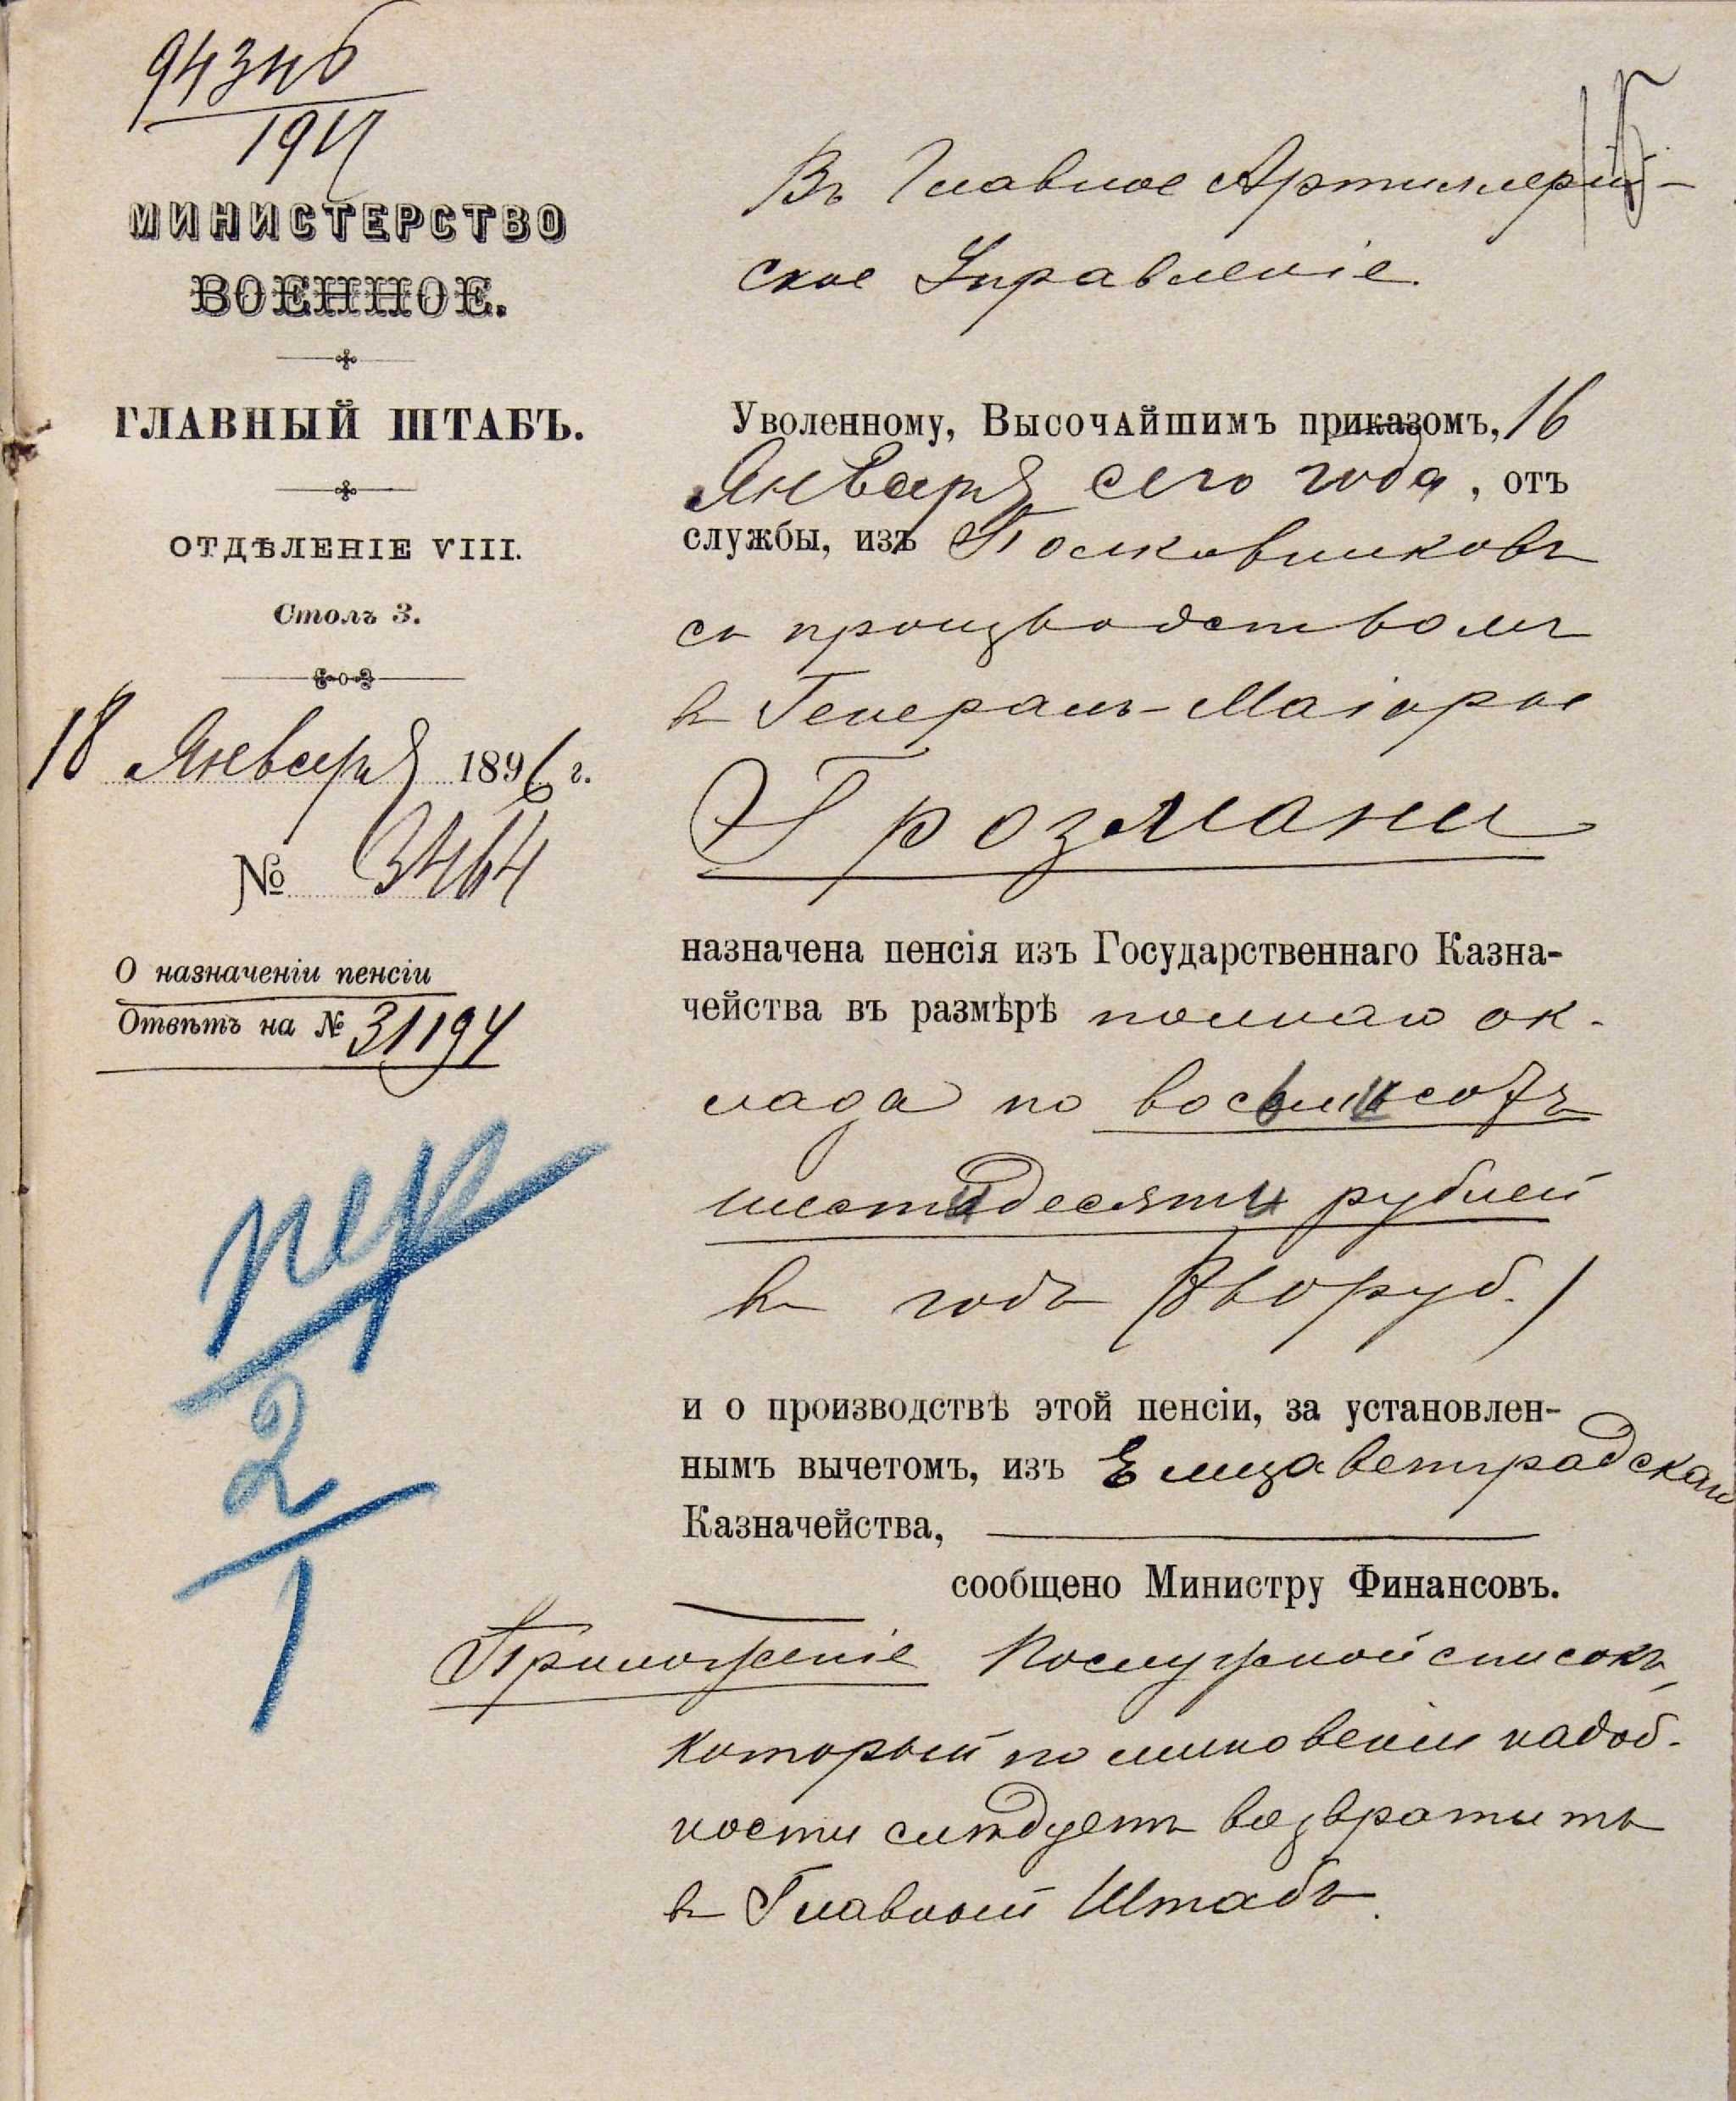 94346
194
МИНИСТЕРСТВО
ВОЕННОЕ.
ГЛАВНЫЙ ШТАБЪ.
ОТДѢЛЕНІЕ VIII.
Столъ 3.
18 Января 1896 г.
№ 3464
О назначеніи пенсіи
Отвѣтъ на № 31194
2
1
Въ Главное Артиллерій-
ское Управленіе.
Уволенному, Высочайшимъ приказомъ, 16
Января сего года, отъ
службы, изъ Полковниковъ
съ производствомъ
въ Генералъ-Маіоры
Грозмани
назначена пенсія изъ Государственнаго Казна-
чейства въ размѣрѣ полнаго ок-
лада по восьмисотъ
шестидесяти рублей
въ годъ (860 руб.)
и о производствѣ этой пенсіи, за установлен-
нымъ вычетомъ, изъ Елизаветградскаго
Казначейства,
сообщено Министру Финансовъ.
Приложеніе Послужной списокъ,
который по минованіи надоб-
ности слѣдуетъ возвратить
въ Главный Штабъ.